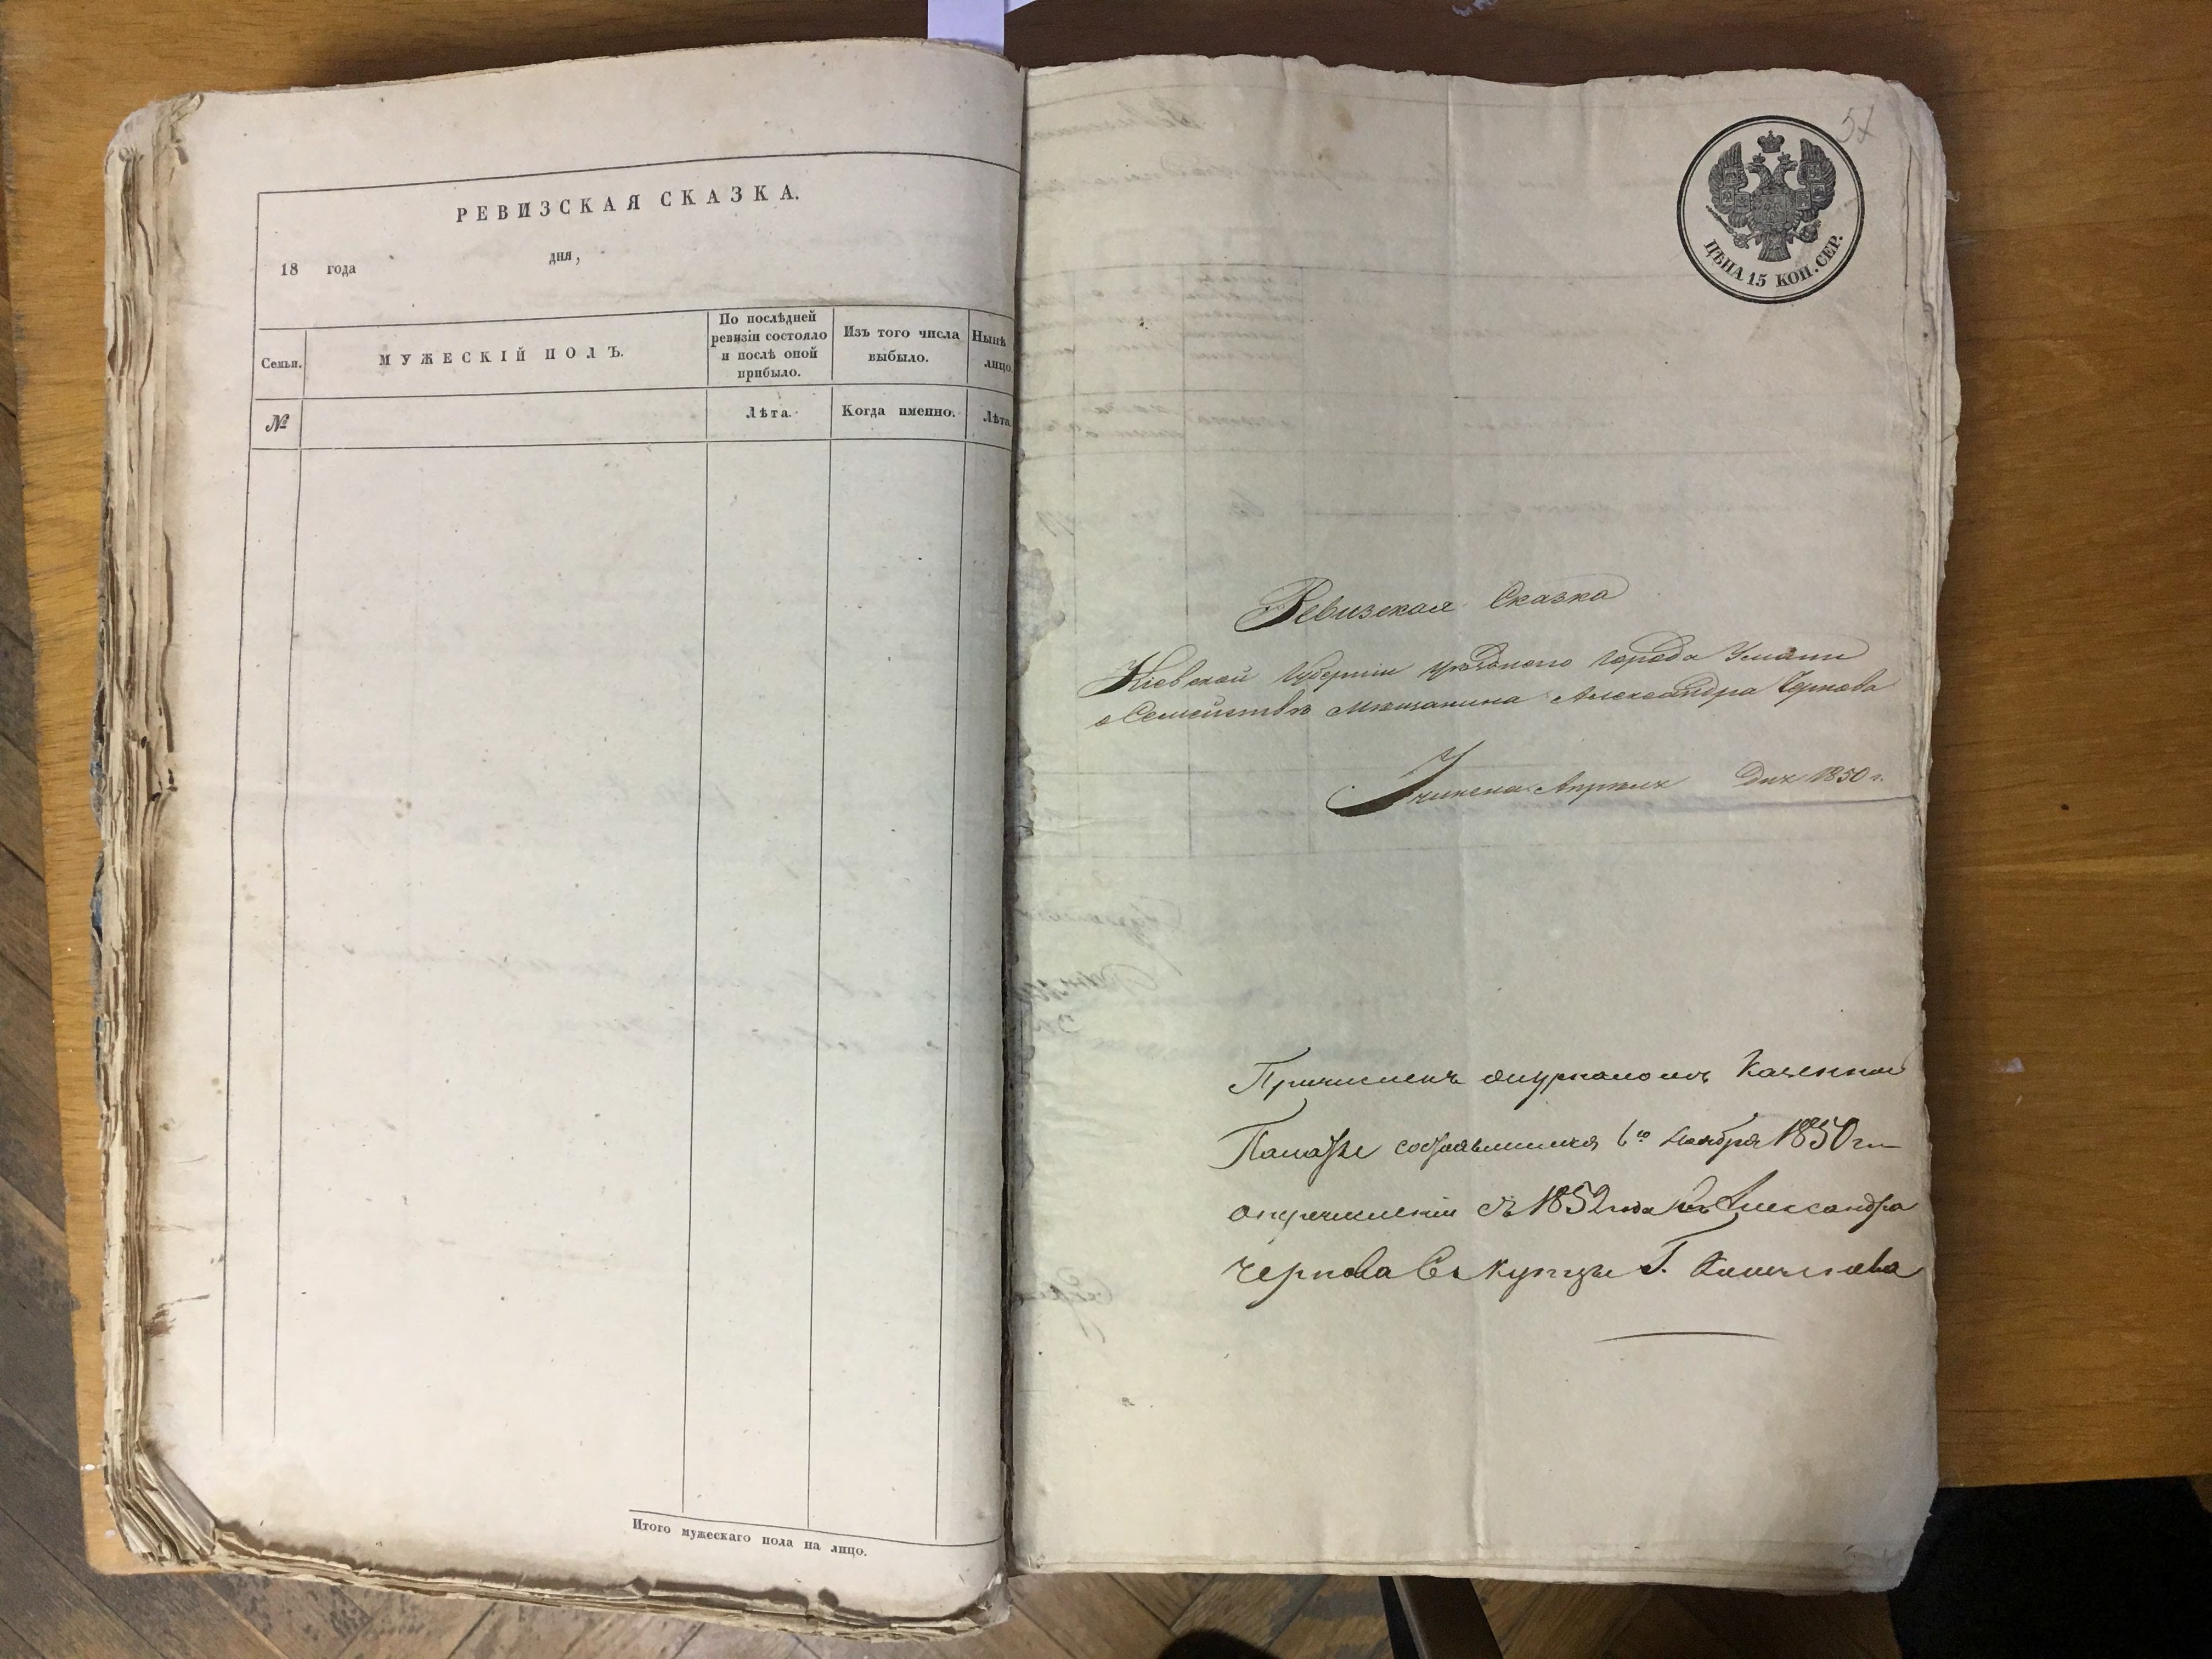 РЕВИЗСКАЯ СКАЗКА.
18 года дня,
Семьи.
МУЖЕСКІЙ ПОЛЪ.
По послѣдней
ревизіи состояло
и послѣ оной
прибыло.
Изъ того числа
выбыло.
Нынѣ
лицо.
№
Лѣта.
Когда именно.
Лѣта.
Итого мужескаго пола на лицо.
57
ЦѢНА 15 КОП. СЕР.
Ревизская Сказка
Кіевской Губерніи уѣзднаго города Умани
о Семействѣ мѣщанина Александра Чернова
Учинена Апрѣля Дня 1850 г.
Причисленъ журналомъ Казенной
Палаты состоявшимся 6го Ноября 1850 г.
о перечисленіи съ 1852 года Александра
Чернова въ купцы Г.